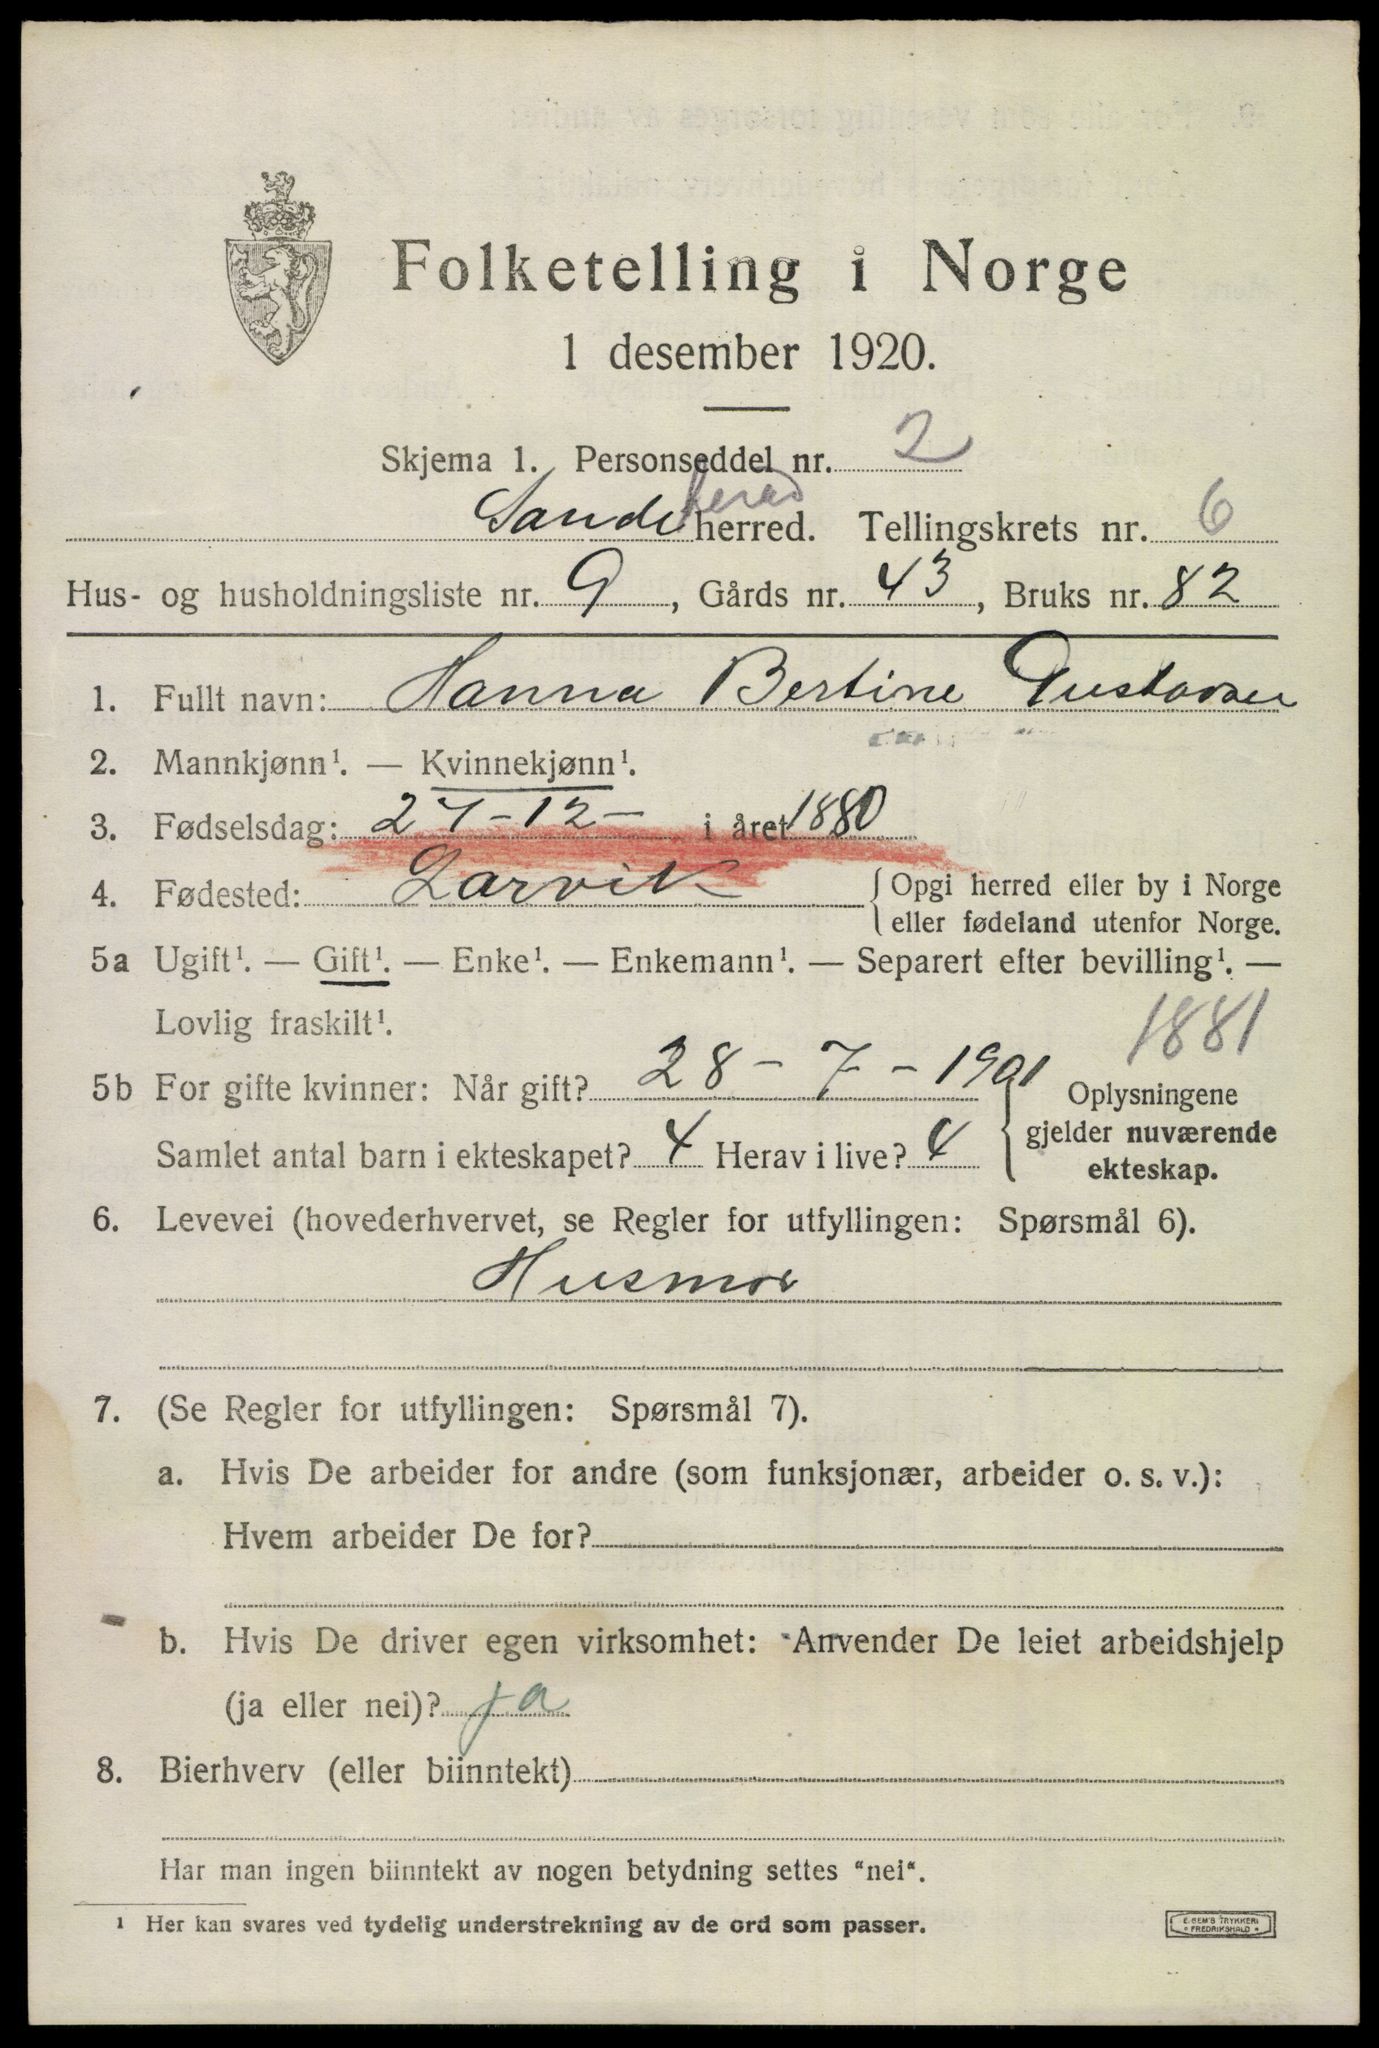 Folketelling i Norge
1 desember 1920.
Skjema 1. Personseddel nr. 2
Sande herad herred. Tellingskrets nr. 6
Hus- og husholdningsliste nr. 9, Gårds nr. 43, Bruks nr. 82
1. Fullt navn: Hanna Bertine Gustavsen
2. Mannkjønn¹. — Kvinnekjønn¹.
3. Fødselsdag: 27-12- i året 1880
4. Fødested: Larvik {Opgi herred eller by i Norge
eller fødeland utenfor Norge.
5a Ugift¹. — Gift¹. — Enke¹. — Enkemann¹. — Separert efter bevilling¹. —
Lovlig fraskilt¹.
1881
5b For gifte kvinner: Når gift? 28-7-1901 { Oplysningene
gjelder nuværende
Samlet antal barn i ekteskapet? 4 Herav i live? 4
ekteskap.
6. Levevei (hovederhvervet, se Regler for utfyllingen: Spørsmål 6).
Husmor
7. (Se Regler for utfyllingen: Spørsmål 7).
a. Hvis De arbeider for andre (som funksjonær, arbeider o. s. v.):
Hvem arbeider De for?
b. Hvis De driver egen virksomhet: Anvender De leiet arbeidshjelp
(ja eller nei)? ja
8. Bierhverv (eller biinntekt)
Har man ingen biinntekt av nogen betydning settes "nei".
¹ Her kan svares ved tydelig understrekning av de ord som passer.
E. SEM'S TRYKKERI
FREDRIKSHALD